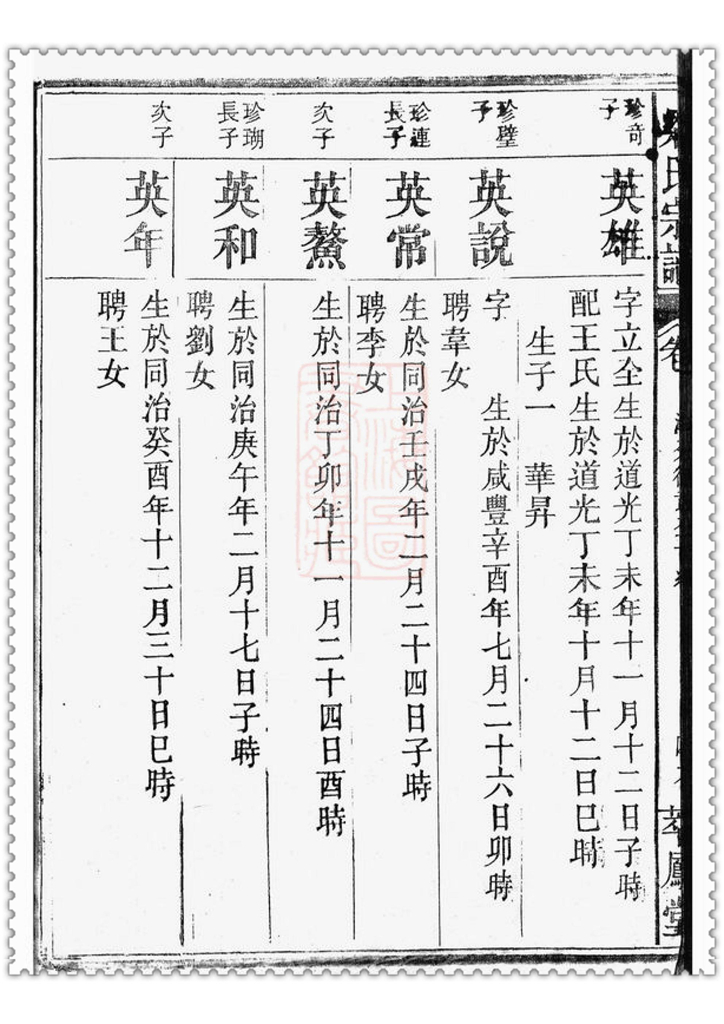 珍奇
子
英雄
字立全生於道光丁未年十一月十二日子時
配王氏生於道光丁未年十月十二日巳時
生子一 華昇
珍璧
子
英說
字 生於咸豐辛酉年七月二十六日卯時
聘韋女
珍連
長子
英常
生於同治壬戌年二月二十四日子時
聘李女
次子
英鰲
生於同治丁卯年十一月二十四日酉時
珍瑚
長子
英和
生於同治庚午年二月十七日子時
聘劉女
次子
英年
生於同治癸酉年十二月三十日巳時
聘王女
氏宗譜
卷
萃鳳堂